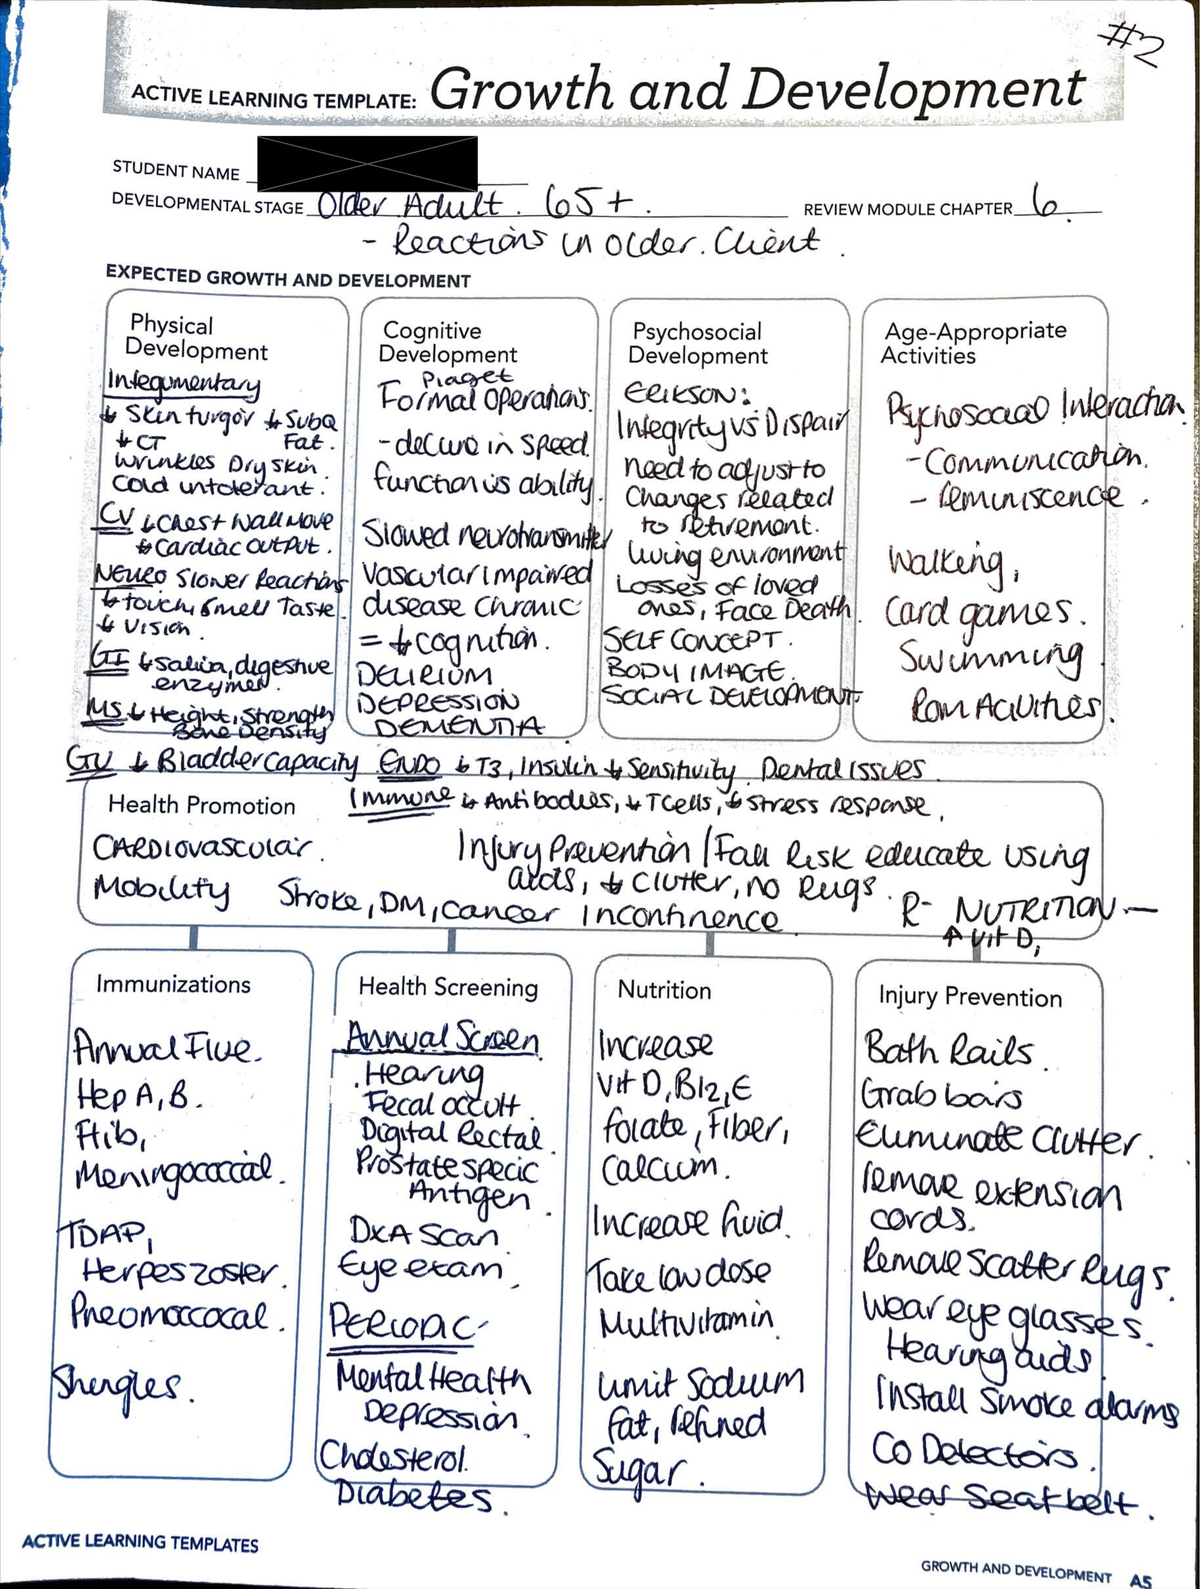 #2
ACTIVE LEARNING TEMPLATE: Growth and Development
STUDENT NAME
DEVELOPMENTAL STAGE Older Adult. 65+. REVIEW MODULE CHAPTER 6.
- Reactions in older. Client.
EXPECTED GROWTH AND DEVELOPMENT
Physical
Development
Integumentary
↓ Skin turgor ↓ SubQ
↓ CT Fat.
Wrinkles Dry skin.
Cold intolerant.
CV ↓ Chest Wall Move
↓ Cardiac OUTPUT.
NEURO Slower Reactions
↓ touch, Smell Taste.
↓ Vision.
GI ↓ Saliva, digestive
enzymes.
MS ↓ Height, Strength
Bone Density
Cognitive
Development
Piaget
Formal Operations.
- decline in speed.
function vs ability.
Slowed neurotransmitter
Vascular impaired
disease Chronic
= ↓ cognition.
DELIRIUM
DEPRESSION
DEMENTIA
Psychosocial
Development
ERIKSON:
Integrity vs Dispair
need to adjust to
Changes related
to retirement.
living environment
Losses of loved
ones, Face Death.
SELF CONCEPT.
BODY IMAGE.
SOCIAL DEVELOPMENT
Age-Appropriate
Activities
Psychosocial Interaction.
- Communication.
- reminiscence.
Walking,
Card games.
Swimming
Rom Activities.
GU ↓ Bladder Capacity ENDO ↓ T3, Insulin ↓ Sensitivity. Dental Issues
Health Promotion
Immune ↓ Antibodies, ↓ T Cells, ↓ Stress response.
CARDIOVASCULAR.
Injury Prevention / Fall Risk educate using
aids, ↓ Clutter, no Rugs.
Mobility Stroke, DM, cancer incontinence
R- NUTRITION —
↑ Vit D,
Immunizations
Annual Flue.
Hep A, B.
Hib,
Meningococcial.
TDAP,
Herpes zoster.
Pneomoccocal.
Shingles.
Health Screening
Annual Screen
. Hearing
Fecal occult.
Digital Rectal.
Prostate specic
Antigen.
DXA Scan.
Eye exam.
PERIODIC
Mental Health
Depression.
Cholesterol.
Diabetes.
Nutrition
Increase
Vit D, B12, E
folate, Fiber,
Calcium.
Increase fluid.
Take low dose
Multivitamin
limit Sodium
Fat, refined
Sugar.
Injury Prevention
Bath Rails.
Grab bars
Eliminate Clutter.
remove extension
cords.
Remove scatter Rugs.
Wear eye glasses.
Hearing aids
Install Smoke alarms
CO Detectors.
Wear Seat belt.
ACTIVE LEARNING TEMPLATES
GROWTH AND DEVELOPMENT A5